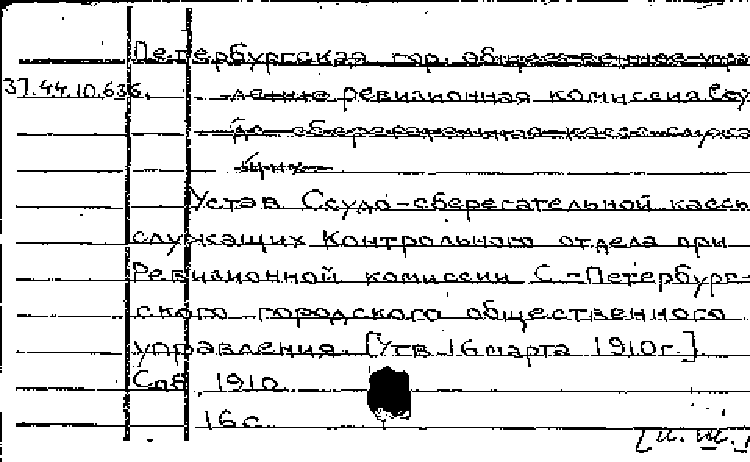 Петербургская гор. общественное упра
37.44.10.636.
ление ревизионная комиссия Ссу
до-сберегательная касса служа
щих
Устав Ссудо-сберегательной кассы
служащих Контрольного отдела при
Ревизионной комиссии С.-Петербург-
ского городского общественного
управления. [Утв. 16 марта 1910г.].
Спб, 1910.
16 с.